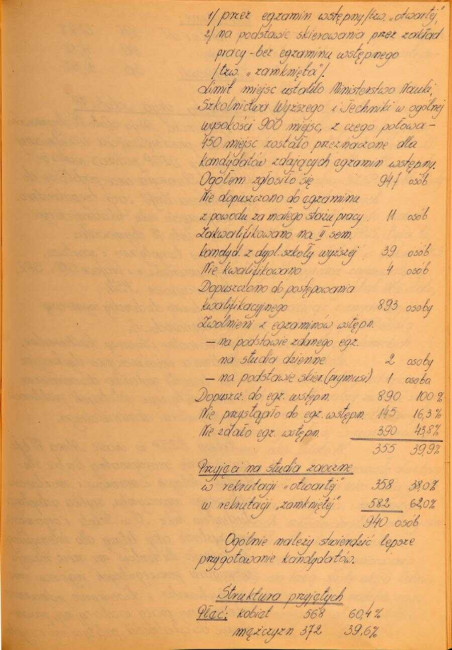 1/ przez egzamin wstępny /tzw. „otwarty”,
2/ na podstawie skierowania przez zakład
pracy - bez egzaminu wstępnego
/tzw. „zamknięta”/.
Limit miejsc ustaliło Ministerstwo Nauki,
Szkolnictwa Wyższego i Techniki w ogólnej
wysokości 900 miejsc, z czego połowa -
450 miejsc zostało przeznaczone dla
kandydatów zdających egzamin wstępny.
Ogółem zgłosiło się 947 osób
Nie dopuszczono do egzaminu
z powodu za małego stażu pracy 11 osób
Zakwalifikowano na II sem.
kandyd. z dypl. szkoły wyższej 39 osób
Nie kwalifikowano 4 osób
Dopuszczono do postępowania
kwalifikacyjnego 893 osoby
Zwolnieni z egzaminów wstępn.
— na podstawie zdanego egz.
na studia dzienne 2 osoby
— na podstawie skier. (prymusi) 1 osoba
Dopuszcz. do egz. wstępn. 890 100%
Nie przystąpiło do egz. wstępn. 145 16,3%
Nie zdało egz. wstępn. 390 43,8%
355 39,9%
Przyjęci na studia zaoczne
w rekrutacji „otwartej” 358 38,0%
w rekrutacji „zamkniętej” 582 62,0%
940 osób
Ogólnie należy stwierdzić lepsze
przygotowanie kandydatów.
Struktura przyjętych
Płeć: kobiet 568 60,4%
mężczyzn 372 39,6%